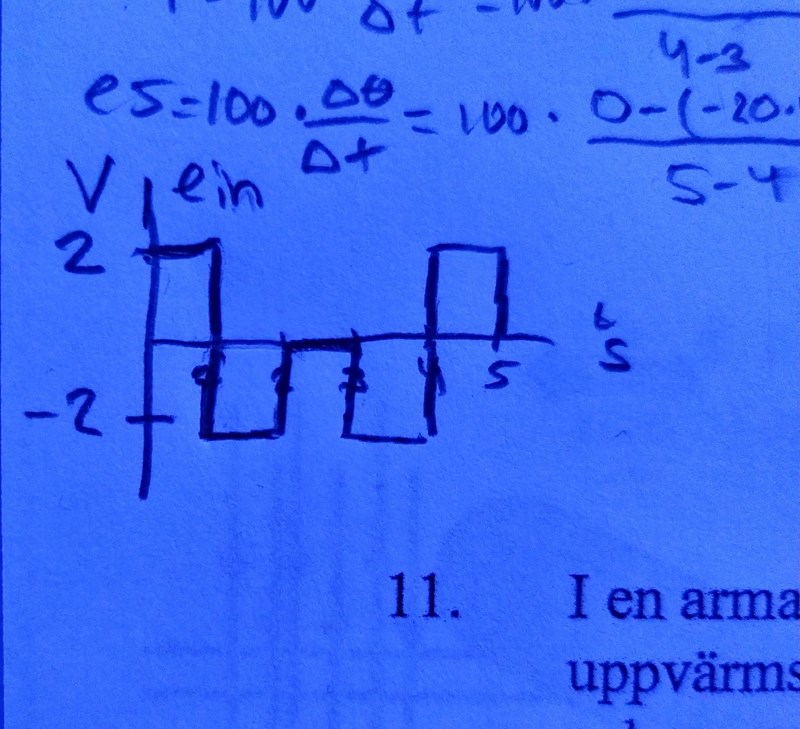 4-3
e5=100·ΔΘ/Δt=100· 0-(-20·
5-4
V ein
2
1 2 3 4 5 t s
-2
11. I en arma
uppvärms